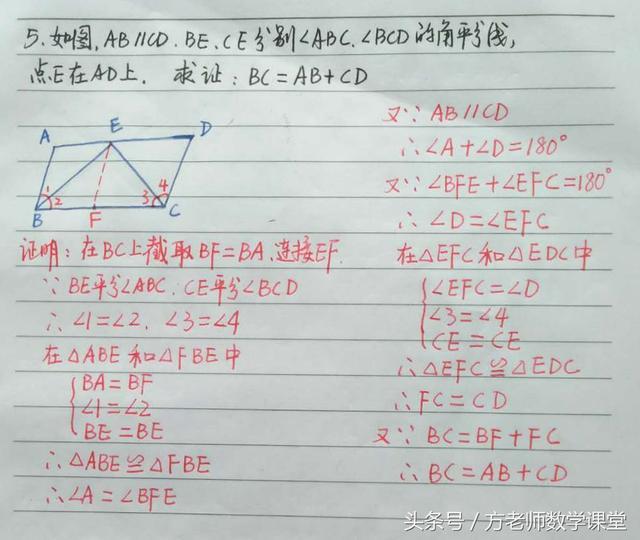 5.如图,AB//CD.BE、CE分别∠ABC、∠BCD的角平分线,
点E在AD上. 求证:BC=AB+CD
A
E
D
1
2
3
4
B
F
C
证明:在BC上截取BF=BA.连接EF.
∵BE平分∠ABC.CE平分∠BCD
∴∠1=∠2.∠3=∠4
在△ABE和△FBE中
BA=BF
∠1=∠2
BE=BE
∴△ABE≌△FBE
∴∠A=∠BFE
又∵AB//CD
∴∠A+∠D=180°
又∵∠BFE+∠EFC=180°
∴∠D=∠EFC
在△EFC和△EDC中
∠EFC=∠D
∠3=∠4
CE=CE
∴△EFC≌△EDC
∴FC=CD
又∵BC=BF+FC
∴BC=AB+CD
头条号/方老师数学课堂